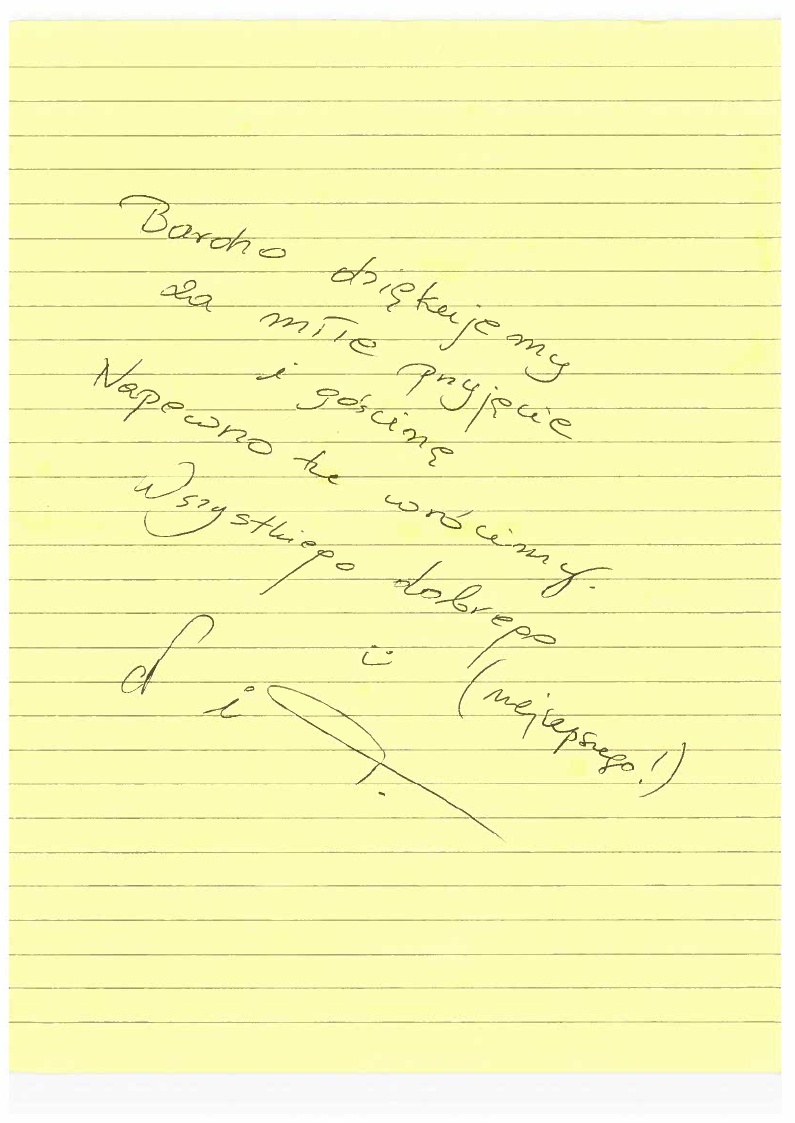 Bardzo dziękujemy
za miłe przyjęcie
i gościnę
Napewno tu wrócimy.
Wszystkiego dobrego
(najlepszego!)